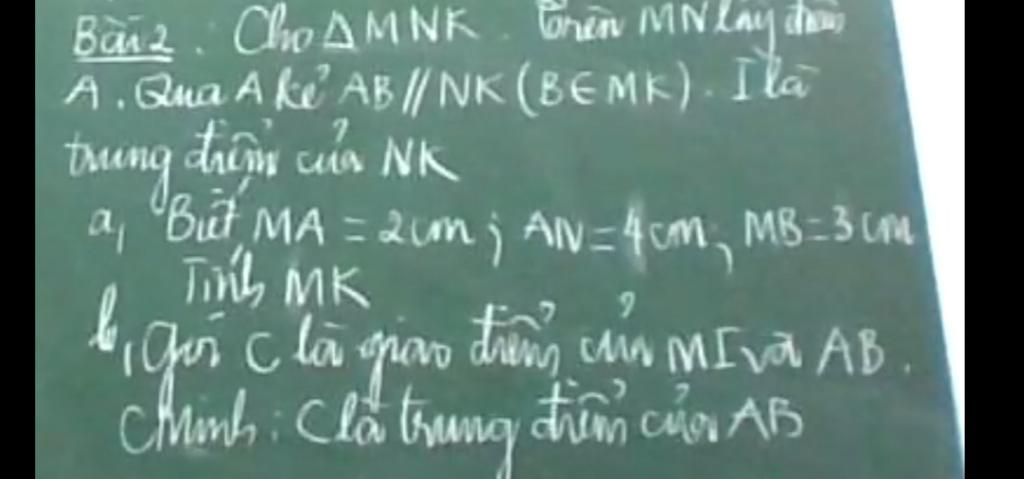 Bài 2. Cho Δ MNK. Trên MN lấy điểm
A. Qua A kẻ AB // NK (B ∈ MK). I là
trung điểm của NK
a, Biết MA = 2cm; AN = 4cm, MB = 3cm
Tính MK
b, Gọi C là giao điểm của MI và AB.
CMinh: C là trung điểm của AB